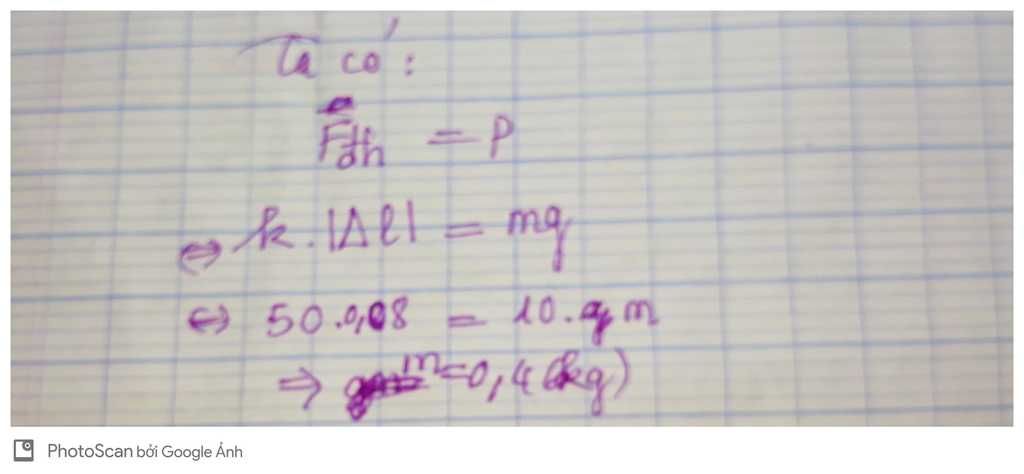 Ta có:
Fđh = P
⇔ k.|Δl| = mg
⇔ 50.0,08 = 10.m
⇒ m=0,4(kg)
PhotoScan bởi Google Ảnh